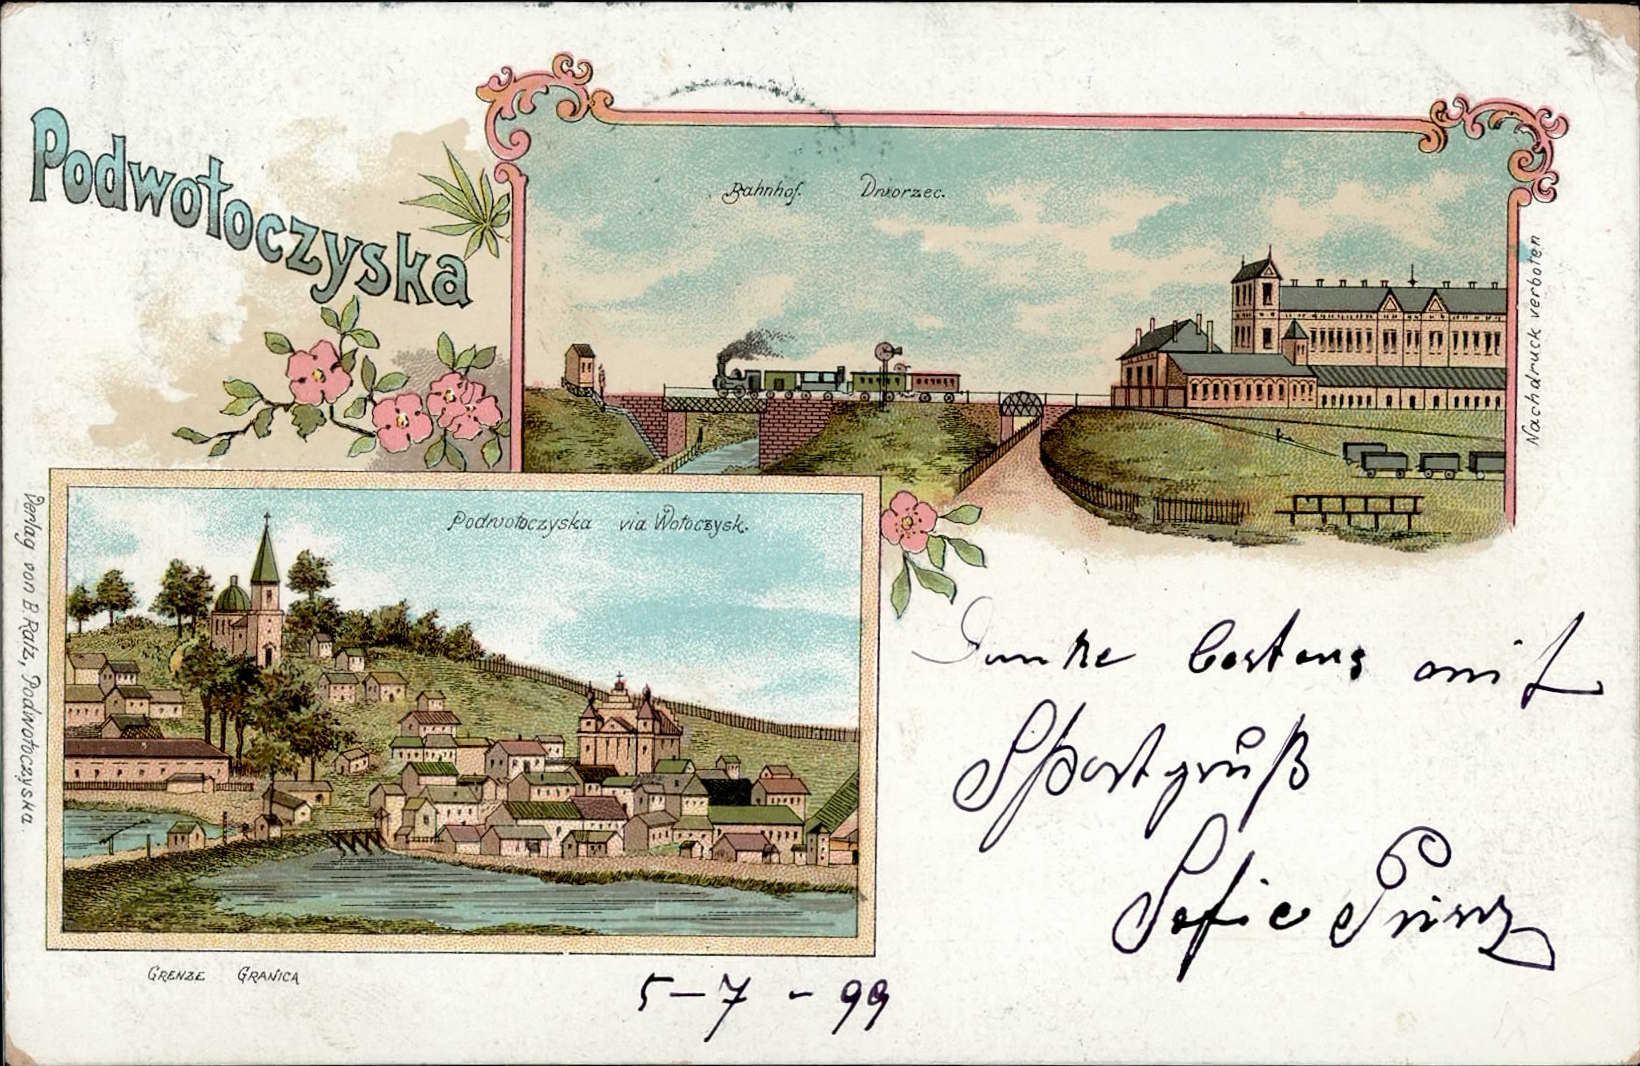 Podwołoczyska
Bahnhof. Dworzec.
Nachdruck verboten
Podwołoczyska via Wołoczysk.
Verlag von B. Ratz, Podwołoczyska.
Grenze Granica
Danke bestens mit
Sportgrüß
Sofie Prinz
5-7-99